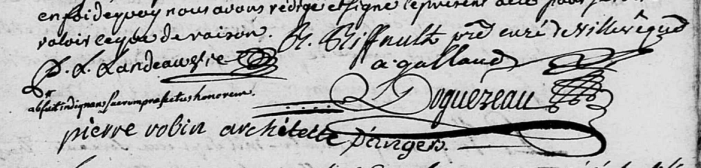 en foi de quoy nous avons rédigé et signé le present acte pour
valoir ce que de raison. R. Riffault prêt curé de Villevêque
P. L. Landeau
a galland
absit indignans sacrum profectus honorem.
Doguereau
pierre robin architette D'angers